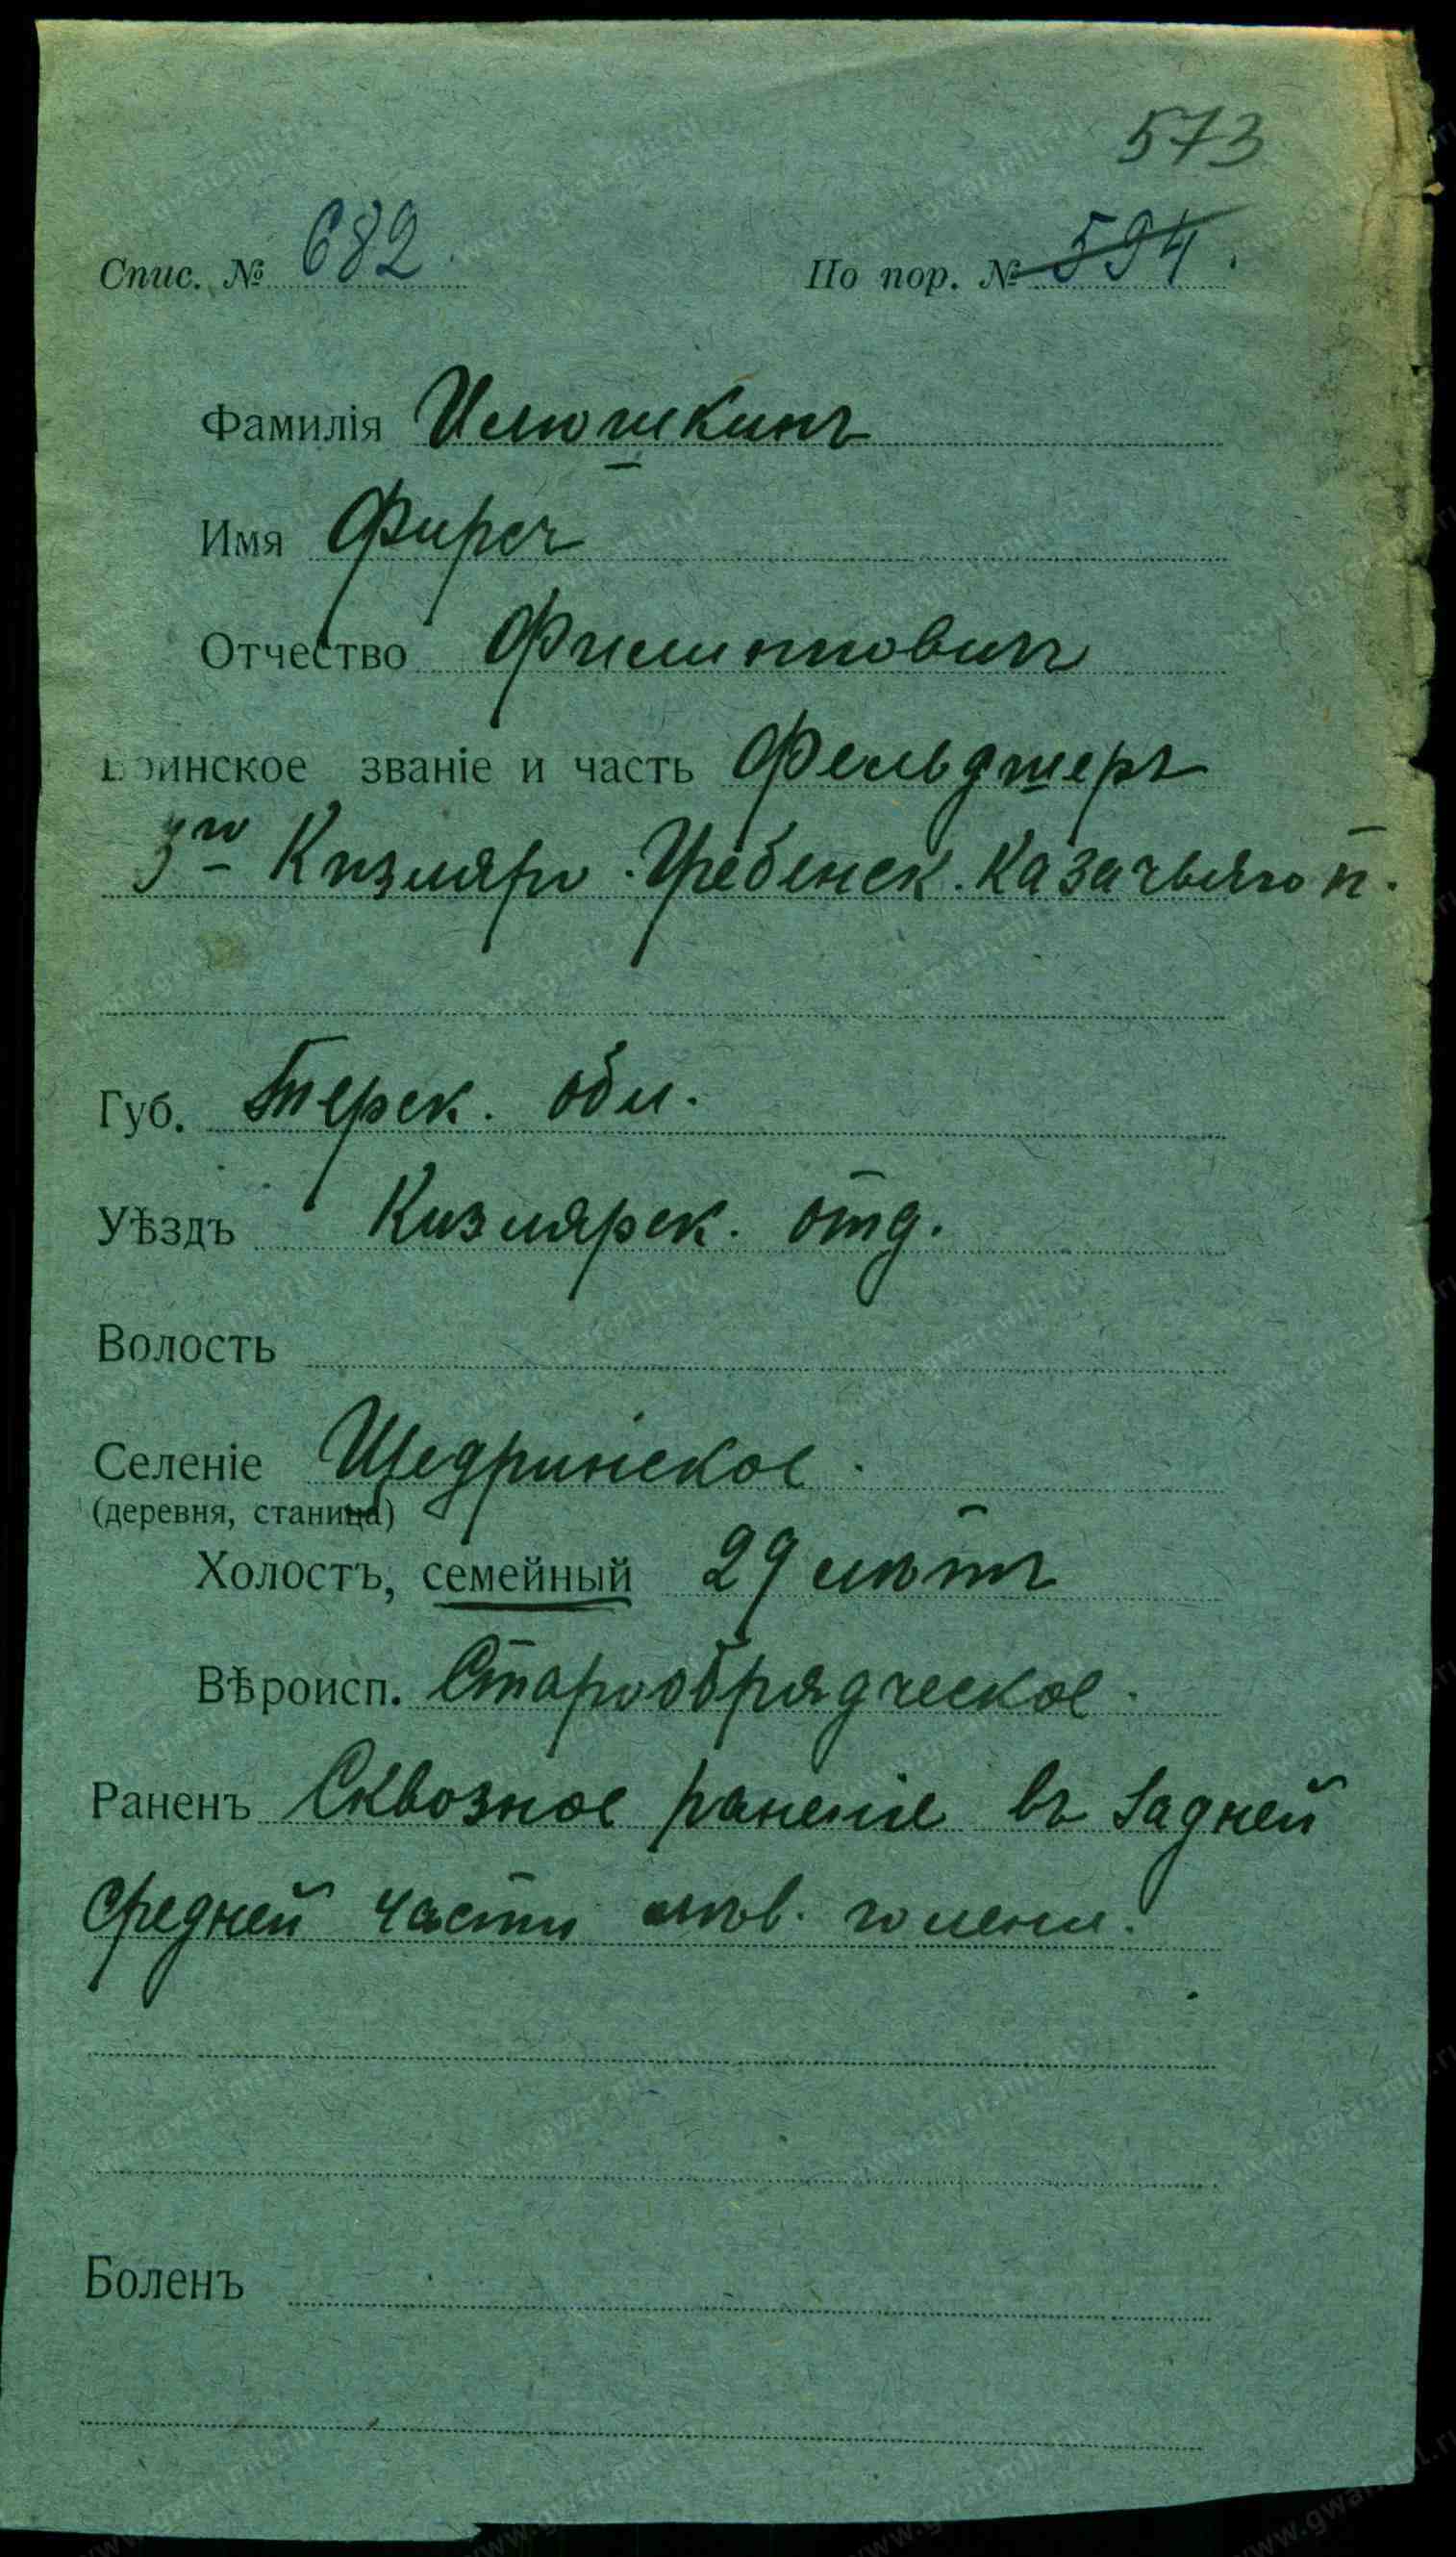 573
Спис. № 682. По пор. № 594.
Фамилія Илюшкинъ
Имя Фирсъ
Отчество Филипповичъ
Воинское званіе и часть Фельдшеръ
3го Кизляро-Гребенск. Казачьяго п.
Губ. Терск. обл.
Уѣздъ Кизлярск. отд.
Волость
Селеніе Щедринское.
(деревня, станица)
Холостъ, семейный 29 лѣтъ
Вѣроисп. Старообрядческое.
Раненъ Сквозное раненіе въ задней
средней части лѣв. голени.
Боленъ